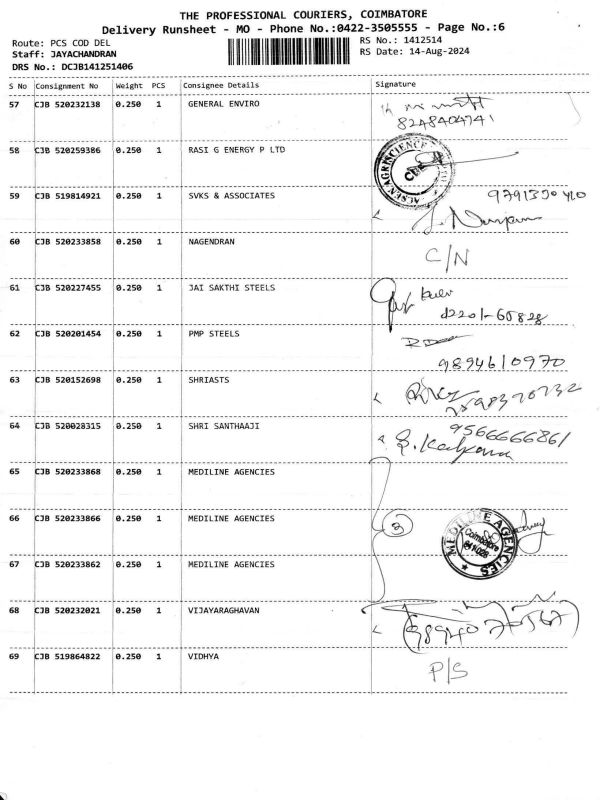 THE PROFESSIONAL COURIERS, COIMBATORE
Delivery Runsheet - MO - Phone No.:0422-3505555 - Page No.:6
Route: PCS COD DEL
RS No.: 1412514
Staff: JAYACHANDRAN
RS Date: 14-Aug-2024
DRS No.: DCJB141251406
S No Consignment No Weight PCS Consignee Details Signature
57 CJB 520232138 0.250 1 GENERAL ENVIRO
8248404741
58 CJB 520259386 0.250 1 RASI G ENERGY P LTD
59 CJB 519814921 0.250 1 SVKS & ASSOCIATES
60 CJB 520233858 0.250 1 NAGENDRAN C/N
61 CJB 520227455 0.250 1 JAI SAKTHI STEELS
62 CJB 520201454 0.250 1 PMP STEELS
9894610970
63 CJB 520152698 0.250 1 SHRIASTS
64 CJB 520028315 0.250 1 SHRI SANTHAAJI 9566666861
65 CJB 520233868 0.250 1 MEDILINE AGENCIES
66 CJB 520233866 0.250 1 MEDILINE AGENCIES 3
MEDILINE AGENCIES
Coimbatore
67 CJB 520233862 0.250 1 MEDILINE AGENCIES
68 CJB 520232021 0.250 1 VIJAYARAGHAVAN
69 CJB 519864822 0.250 1 VIDHYA P/S